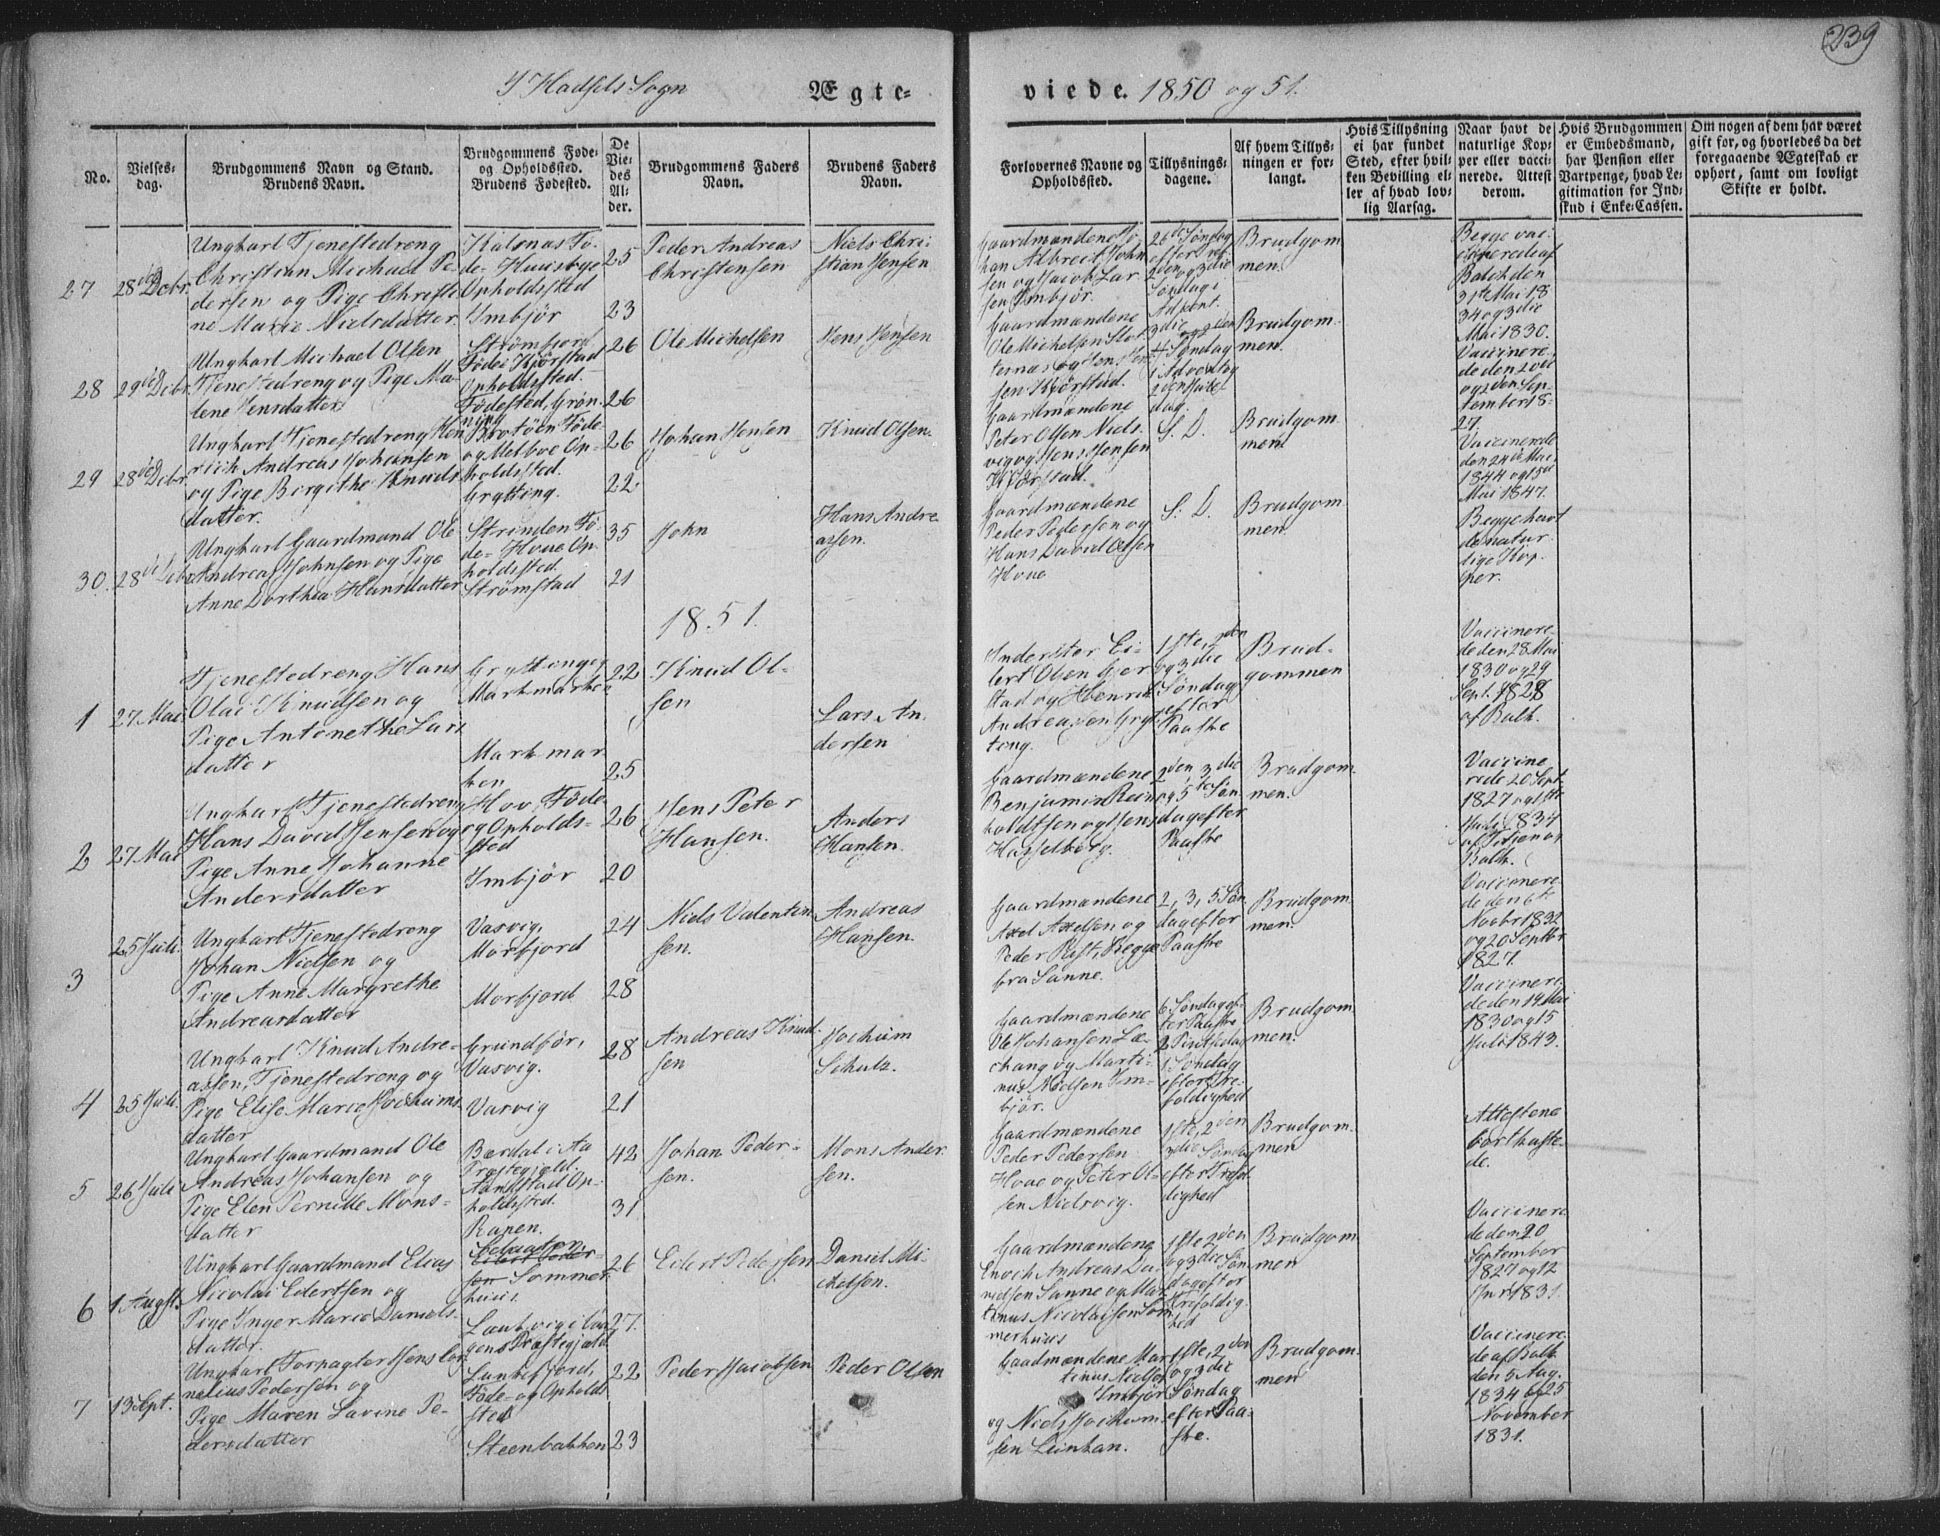 239
I Hadsels Sogn Ægte-
viede. 1850 og 51.
No.
Vielses-
dag.
Brudgommens Navn og Stand.
Brudens Navn.
Brudgommens Føde-
og Opholdssted.
Brudens Fødested.
De
Vie-
des
Al-
der.
Brudgommens Faders
Navn.
Brudens Faders
Navn.
Forlovernes Navne og
Opholdssted.
Tillysnings-
dagene.
Af hvem Tillys-
ningen er for-
langt.
Hvis Tillysning
ei har fundet
Sted, efter hvil-
ken Bevilling el-
ler af hvad lov-
lig Aarsag.
Naar havt de
naturlige Kop-
per eller vacci-
nerede. Attest
derom.
Hvis Brudgommen
er Embedsmand,
har Pension eller
Vartpenge, hvad Le-
gitimation for Ind-
skud i Enke-Cassen.
Om nogen af dem har været
gift før, og hvorledes da det
foregaaende Ægteskab er
ophørt, samt om lovligt
Skifte er holdt.
27
28de Dcbr.
Ungkarl Tjenestedreng
Christian Michael Pe-
dersen og Pige Christi-
ne Marie Nielsdatter.
Fø-
de- Huusbye
Opholdsted
Imbjör
25
23
Peder Andreas
Christensen
Niels Chri-
stian Jensen
Gaardmændene Jo-
han Albreit John-
sen og Jacob Lar-
sen Imbjör.
26de Søndag
2den og 3die
Søndag i
Advent.
Brudgom
men.
Begge vac-
cinerede af
Balch den
31te Mai 18
34 og 3die
Mai 1830.
28
29de Dcbr.
Ungkarl Michael Olsen
Tjenestedreng og Pige Ma-
lene Jensdatter
Strömfjord
Føde- Kjörstad
Opholdsted.
Födested, Grön-
ning
26
26
Ole Michelsen
Jens Jensen
Gaardmændene
Ole Michelsen
Jen-
sen Kjörstad.
3die og
4 Søndag
i Advent og
2den Jule
dag.
Brudgom-
men.
Vaccinere-
de den 2die
og 2den Sep-
tember 18-
27.
29
28de Dcbr.
Ungkarl Tjenestedreng Hen
rich Andreas Johansen
og Pige Birgithe Knuds
datter.
Brotöen Føde
og Melboe Op-
holdsted.
Grytting.
26
22
Johan Jensen
Knud Olsen.
Gaardmændene
Peter Olsen Niels-
vig og Jens Jensen
Kjörstad.
S. D.
Brudgom
men.
Vaccinerede
den 24de Mai
1844 og 15de
Mai 1847.
30.
28de Dcbr.
Ungkarl Gaardmand Ole
Andreas Johnsen og Pige
Anne Dorthea Hansdatter
Strinden Fø-
de- Hove Op-
holdsted.
Strømstad
35
21
John
Hans Andre
assen.
Gaardmændene
Peder Pedersen og
Hans David Olsen
Hove
S. D.
Brudgom
men.
Begge havt
de natur-
lige Kop-
per.
1851.
1
27 Mai
Tjenestedreng Hans
Olai Knudsen og
Pige Antonethe Lars
datter
Grytting og
Markmarken
Markmar
ken
22
25
Knud Ol-
sen
Lars An-
dersen
Inderster Ei-
lert Olsen Gjer
stad og Henrik
Andreassen Gryt
ting.
1ste, 2den
og 3die
Søndag
efter
Paaske
Brud-
gommen
Vaccinere-
de den 28 Mai
1830 og 29
Sept. 1828
af Balk.
2
27 Mai
Ungkarl Tjenestedreng
Hans David Jensen og
Pige Anne Johanne
Andersdatter
Hov, Føde-
og Opholds-
sted
Imbjör
26
20
Jens Peter
Hansen.
Anders
Hansen.
Gaardmændene
Benjamin Rein
holdtsen og Jens
Hasselberg.
2den 3die
og 5te Søn-
dag efter
Paaske
Brudgom
men.
Vaccine
rede 20 Sept.
1827 og 1ste
Juli 1834
af og
Balk.
3
25 Juli.
Ungkarl Tjenestedreng
Johan Nielsen og
Pige Anne Margrethe
Andreasdatter
Vasvig,
Morfjord
Morfjord
24
28
Niels Valentin
sen.
Andreas
Hansen.
Gaardmændene
Axel Axelsen og
Peder Rist, Begge
fra Sanne.
2, 3, 5 Søn
dag efter
Paaske
Brudgom
men.
Vaccinere-
de den 6te
Novbr 1832
og 20 Septbr
1827.
4
25 Juli.
Ungkarl Knud Andre-
assen, Tjenestedreng og
Pige Elise Marie Jochums
datter
Grundför,
Vasvig.
Vasvig
28
21
Andreas Knud-
sen
Jochum
Schulz.
Gaardmændene
Ole Johansen Læ-
chang og Marti-
nus Nielsen Im-
björ.
6. Søndag ef-
ter Paaske
2 Pintsedag
1 Søndag
efter Tre-
foldighed
Brudgom
men.
Vaccinere
de den 19 Mai
1830 og 15
Juli 1843.
5
26 Juli
Ungkarl Gaardmand Ole
Andreas Johansen og
Pige Elen Pernille Mons-
datter
Bærdal i Aa
Præstegjeld
Op-
holdsted.
Ranen.
42
31
Johan Peder-
sen.
Mons Ander
sen.
Gaardmændene
Peder Pedersen
Hove og Peter Ol-
sen Nielsvig.
1ste, 2den
3die Søndag
efter Trefol
dighed
Brudgom-
men
Attesterne
bortkaste-
de.
6
1 Augst.
Ungkarl Gaardmand Elias
Nicolai Eilertsen og
Pige Inger Marie Daniels-
datter.
Sommer
huus.
Laukvig i Vaa
gens Præstegjæld
26
27.
Eilert Pedersen
Daniel Mi-
chelsen.
Gaardmændene
Enoch Andreas Da-
nielsen Sanne og Mar
tinus Nicolaisen Som
merhuus
1ste 2den
og 3die Søn
dag efter
Trefoldig-
hed
Brudgom
men
Vaccinere
de den 20
September
1827 og 12
Juni 1831.
7
13 Spt.
Ungkarl Forpagter Jens Cor
nelius Pedersen og
Pige Maren Lavine Pe-
dersdatter
Lunkefjord,
Føde- og Opholds
sted
Steenbakken
22
23
Peder Jacobsen
Peder Olsen
Gaadmændene Mar
tinus Nielsen
Imbjör
og Niels Jochum-
sen Leinhan.
1ste, 2den
og 3die
Søndag
efter Paa-
ske.
Brudgom-
men
Vaccinere-
de af Balk
den 5 Aug.
1834 og 25
November
1831.